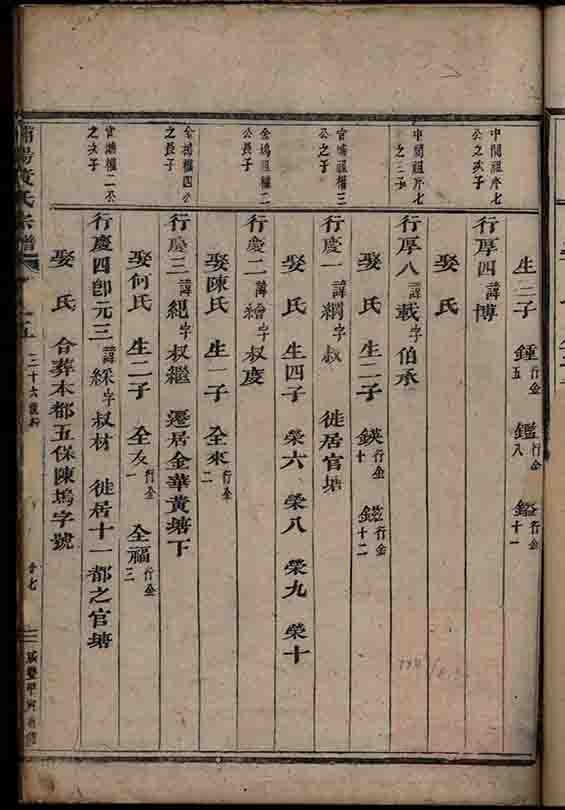 生三子 鍾行金五 鑑行金八 鎰行金十一
中間祖序七公之次子
行厚四諱博
娶 氏
中間祖序七公之三子
行厚八諱載字伯承
娶 氏 生二子 鍈行金十 行金十二
官塘祖權三公之子
行慶一諱綱字叔 徙居官塘
娶 氏 生四子 榮六 榮八 榮九 榮十
金塢祖權二公長子
行慶二諱繪字叔度
娶陳氏 生一子 全來行金二
金塢權四公之長子
行慶三諱紀字叔繼 遷居金華黃塘下
娶何氏 生二子 全友行金一 全福行金三
官塘權二公之次子
行慶四卽元三諱綵字叔材 徙居十一都之官塘
娶 氏 合葬本都五保陳塢字號
黃氏宗譜
三十六
廿七
咸豐甲寅